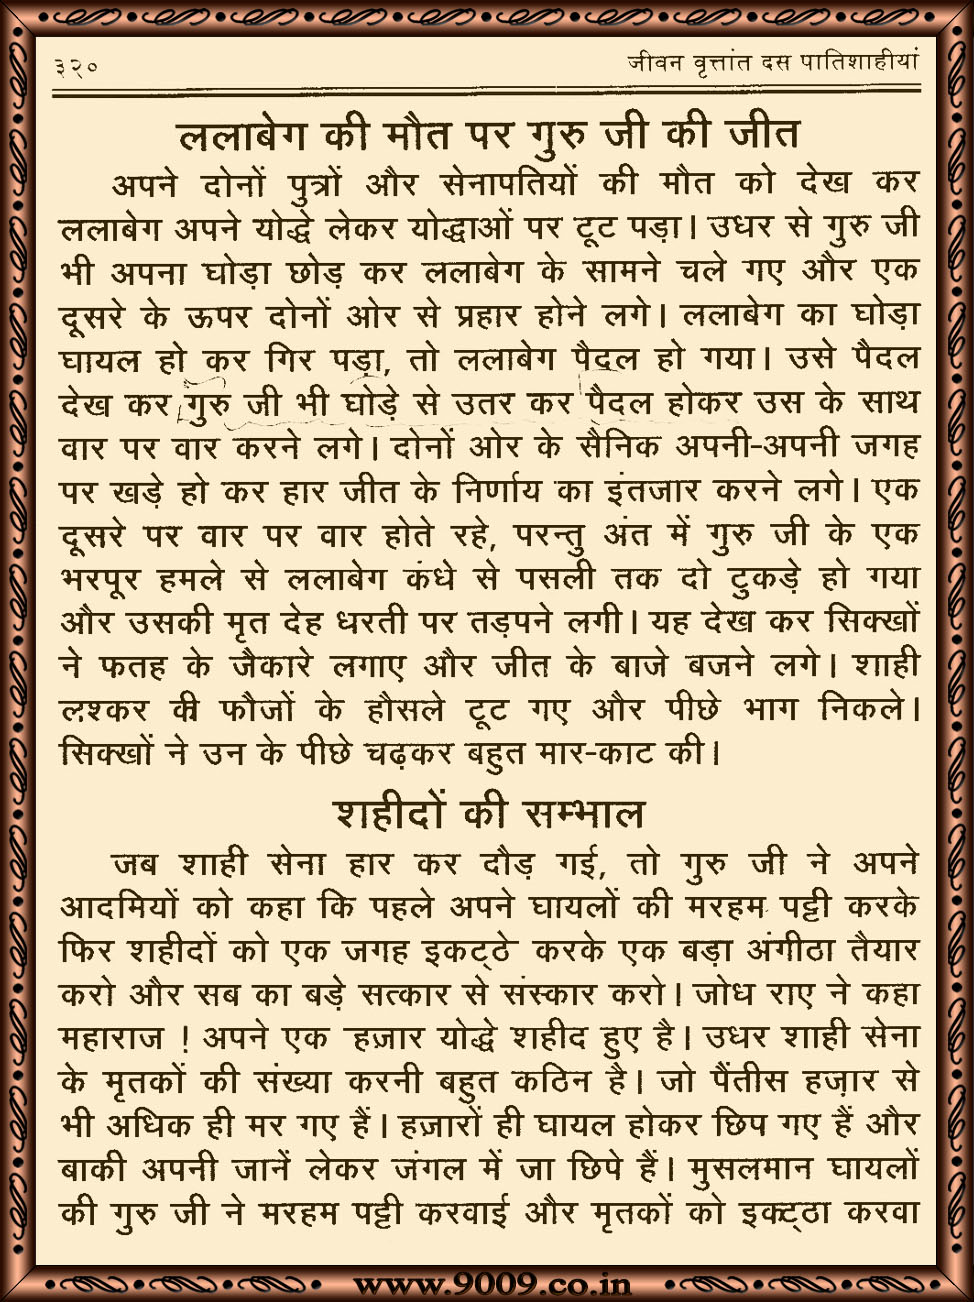 ३२०
जीवन वृत्तांत दस पातिशाहीयां
ललाबेग की मौत पर गुरु जी की जीत
अपने दोनों पुत्रों और सेनापतियों की मौत को देख कर
ललाबेग अपने योद्धे लेकर योद्धाओं पर टूट पड़ा। उधर से गुरु जी
भी अपना घोड़ा छोड़ कर ललाबेग के सामने चले गए और एक
दूसरे के ऊपर दोनों ओर से प्रहार होने लगे। ललाबेग का घोड़ा
घायल हो कर गिर पड़ा, तो ललाबेग पैदल हो गया। उसे पैदल
देख कर गुरु जी भी घोड़े से उतर कर पैदल होकर उस के साथ
वार पर वार करने लगे। दोनों ओर के सैनिक अपनी-अपनी जगह
पर खड़े हो कर हार जीत के निर्णाय का इंतजार करने लगे। एक
दूसरे पर वार पर वार होते रहे, परन्तु अंत में गुरु जी के एक
भरपूर हमले से ललाबेग कंधे से पसली तक दो टुकड़े हो गया
और उसकी मृत देह धरती पर तड़पने लगी। यह देख कर सिक्खों
ने फतह के जैकारे लगाए और जीत के बाजे बजने लगे। शाही
लश्कर की फौजों के हौसले टूट गए और पीछे भाग निकले।
सिक्खों ने उन के पीछे चढ़कर बहुत मार-काट की।
शहीदों की सम्भाल
जब शाही सेना हार कर दौड़ गई, तो गुरु जी ने अपने
आदमियों को कहा कि पहले अपने घायलों की मरहम पट्टी करके
फिर शहीदों को एक जगह इकट्ठे करके एक बड़ा अंगीठा तैयार
करो और सब का बड़े सत्कार से संस्कार करो। जोध राए ने कहा
महाराज ! अपने एक हज़ार योद्धे शहीद हुए है। उधर शाही सेना
के मृतकों की संख्या करनी बहुत कठिन है। जो पैंतीस हज़ार से
भी अधिक ही मर गए हैं। हज़ारों ही घायल होकर छिप गए हैं और
बाकी अपनी जानें लेकर जंगल में जा छिपे हैं। मुसलमान घायलों
की गुरु जी ने मरहम पट्टी करवाई और मृतकों को इक्ट्ठा करवा
www.9009.co.in